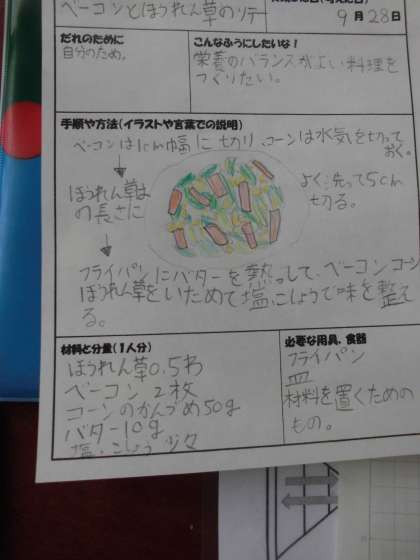 ベーコンとほうれん草のソテー
9月28日
だれのために
自分のため。
こんなふうにしたいな！
栄養のバランスがよい料理を
つくりたい。
手順や方法(イラストや言葉での説明)
ベーコンは1cm幅に切り、コーンは水気を切って
おく。
ほうれん草は
よく洗って5cm
の長さに
切る。
フライパンにバターを熱っして、ベーコンコーン
ほうれん草をいためて塩、こしょうで味を整え
る。
材料と分量(1人分)
ほうれん草0.5わ
ベーコン 2枚
コーンのかんづめ50g
バター10g
塩・こしょう 少々
必要な用具、食器
フライパン
皿
材料を置くための
もの。